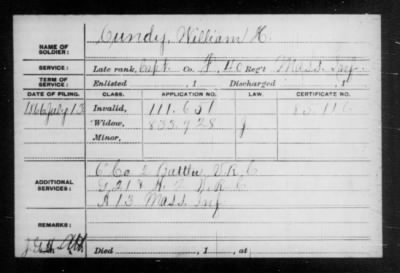 NAME OF SOLDIER: Cundy, William H.
SERVICE: Late rank, Capt Co. F, 40 Reg't Mass. Inf
TERM OF SERVICE: Enlisted , 1 Discharged , 1
DATE OF FILING. CLASS. APPLICATION NO. LAW. CERTIFICATE NO.
1866 July 13 Invalid, 111.651 85.116
Widow, 833.928 J
Minor,
ADDITIONAL SERVICES: C Co 2 Battn V.R.C
G 21 V.R.C
A 13 Mass Inf
REMARKS:
Died , 1 , at